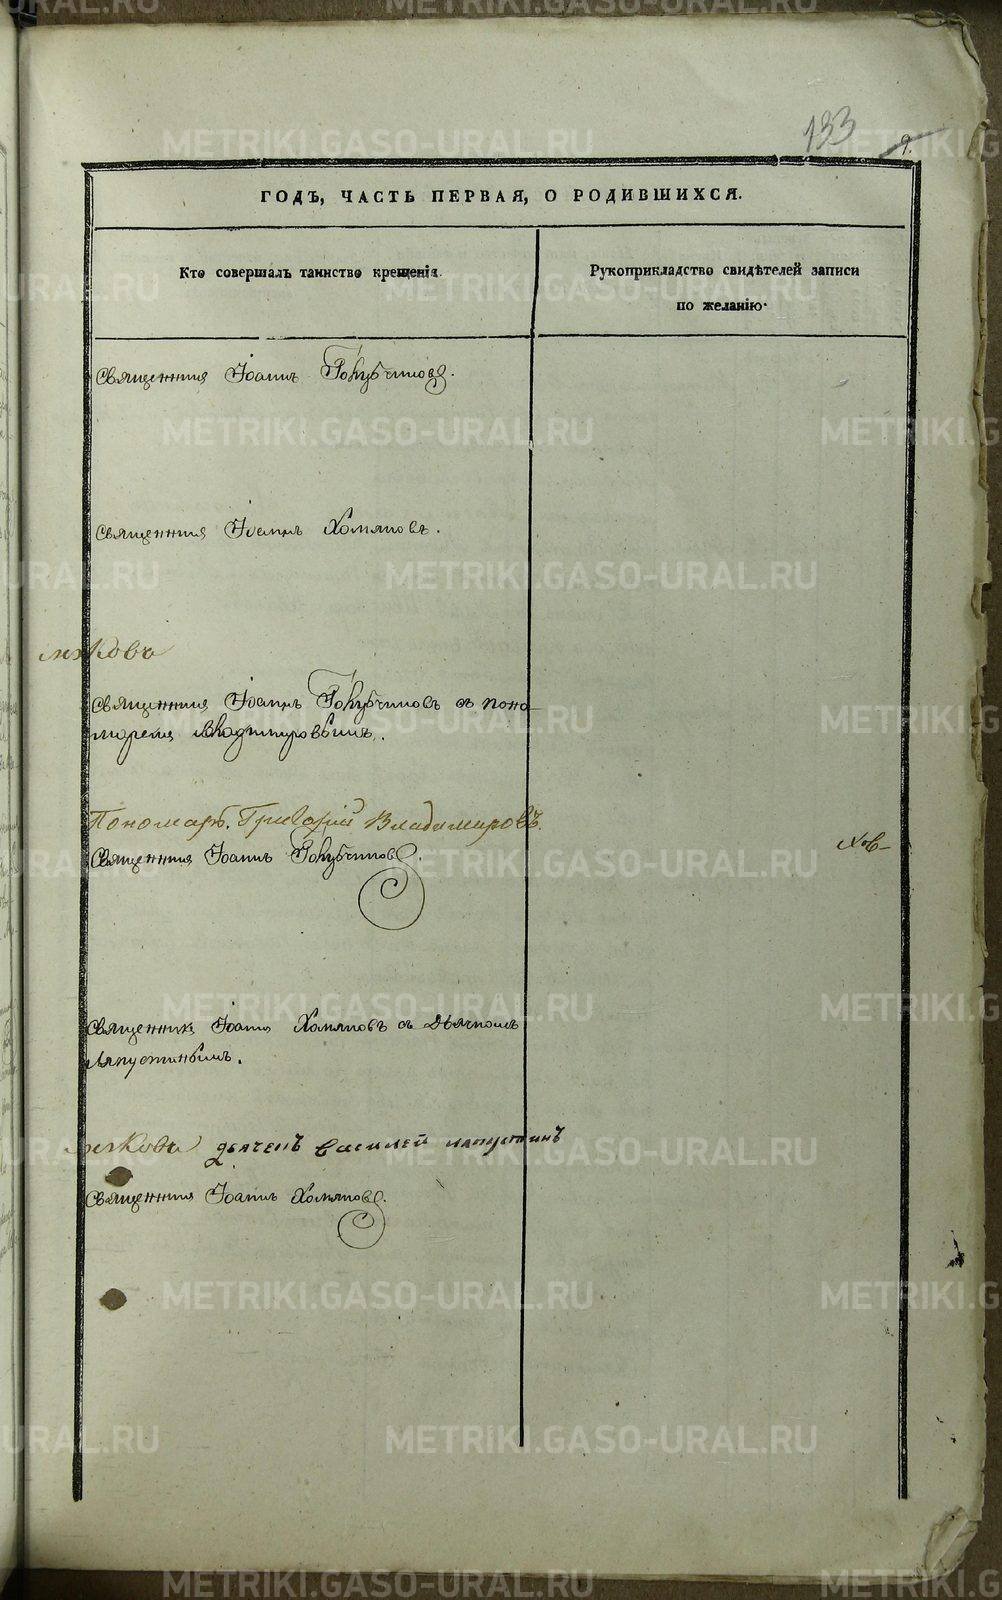 133
9.
ГОДЪ, ЧАСТЬ ПЕРВАЯ, О РОДИВШИХСЯ.
Кто совершалъ таинство крещенія.
Рукоприкладство свидѣтелей записи
по желанію.
Священникъ Іоаннъ Голубчиковъ.
Священникъ Іоаннъ Хомяковъ.
Священникъ Іоаннъ Голубчиковъ съ поно-
маремъ Владимировымъ.
Пономарь Григорій Владимировъ.
Священникъ Іоаннъ Голубчиковъ.
Священникъ Іоаннъ Хомяковъ съ Дьячкомъ
Ляпустинымъ.
дьячекъ Василей Ляпустинъ
Священникъ Іоаннъ Хомяковъ.
METRIKI.GASO-URAL.RU